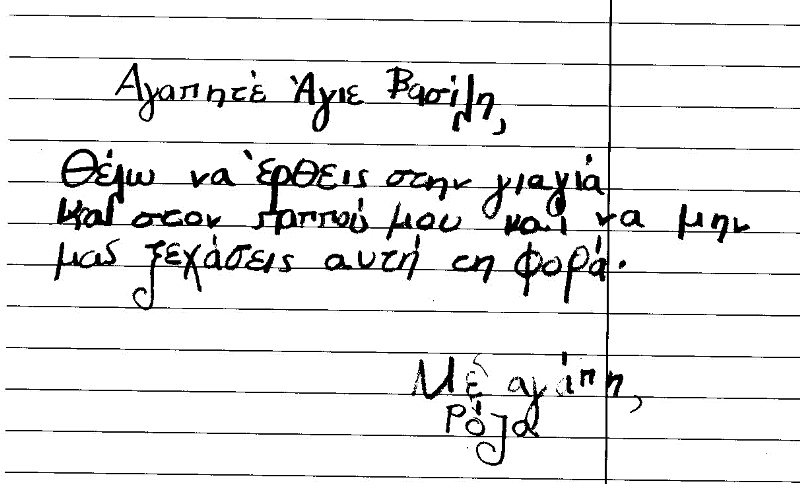 Αγαπητέ Άγιε Βασίλη,
Θέλω να έρθεις στην γιαγιά
και στον παππού μου και να μην
μας ξεχάσεις αυτή τη φορά.
Με αγάπη,
Ρόζα